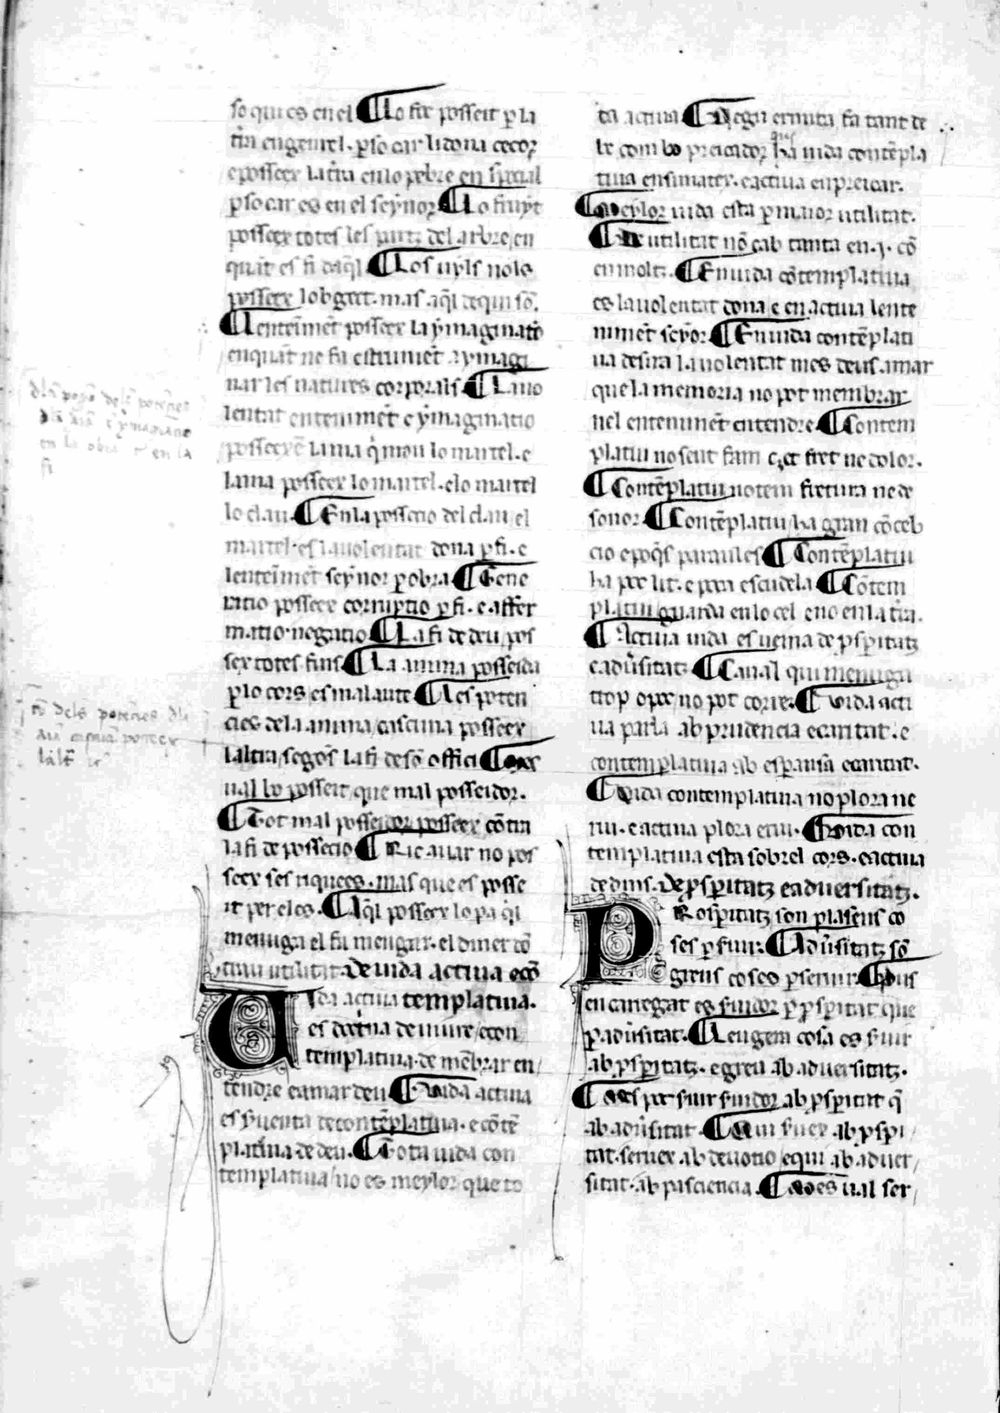 so qui es en el ¶ Lo foc posseit per la
t̃ra engenrel. ꝑ so car li dona cecor
e posseex la t̃ra en lo pebre en special
ꝑ so car es en el seyñor ¶ Lo fruyt
posseex totes les partz del arbre en
quãt es fi daq̃l ¶ Los uyls no lo
posseex lobgect. mas aq̃l de qui sõ.
¶ Lentenimẽt posseex la ymaginatio
en quãt ne fa estrumẽt a ymagi
nar les natures corporals ¶ La uo
lentat entenimẽt e ymaginatio
posseexẽ la ma q̃ mou lo martel. e
la ma posseex lo martel. e lo martel
lo clau. ¶ En la possecio del clau el
martel. es la uolentat dona ꝑ fi. e
lentenimẽt seyñor ꝑ obra ¶ Gene
racio posseex corrupcio ꝑ fi. e affer
matio. negatio ¶ La fi de deu pos
sex totes fins ¶ La anima posseida
ꝑ lo cors es malaute ¶ Les poten
cies de la anima cascuna posseex
laltra segons la fi de sõ offici ¶ Mes
ual bo posseit que mal posseidor.
¶ Tot mal posseidor posseex cõtra
la fi de possecio ¶ Ric auar no pos
seex ses riquees. mas que es posse
it per eles. ¶ Aq̃l posseex lo pa q̃l
meniuga el fa mengar. el diner cõ
trau utilitat. De uida actiua e cõ
Uida actiua templatiua.
es doctrina de uiure / e con
templatiua. de mẽbrar en/
tendre e amar deu ¶ Vida actiua
es seruenta de contẽplatiua. e cõtẽ
platiua de deu. ¶ Tota uida con
templatiua / no es meylor que to
da actiua ¶ Negu ermita fa tant de
be com bo preicador qui ha uida contẽpla
tiua en si mateix. e actiua en preicar.
¶ Meylor uida esta ꝑ maior utilitat.
¶ De utilitat nõ cab tanta en .j. cõ
en molts. ¶ En uida cõtemplatiua
es la uolentat dona e en actiua lente
nimẽt seyor ¶ En uida contẽplati
ua desira la uolentat mes deus amar
que la memoria no pot membrar
nel enteniment entendre ¶ Contem
platiu no sent fam e set fret ne dolor.
¶ Contẽplatiu no tem fretura ne de
sonor ¶ Contẽplatiu ha gran cõceb
cio e poq̃s paraules ¶ Contẽplatiu
ha poc lit. e poca escudela ¶ Cõtem
platiu guarda en lo cel e no en la t̃ra.
¶ Actiua uida es ueina de ꝑsperitatz
e adũsitatz ¶ Caual qui meniuga
trop o poc / no pot correr. ¶ Vida acti
ua parla ab prudencia e caritat. e
contemplatiua ab esperança e caritat.
¶ Vida contemplatiua no plora ne
riu. e actiua plora e riu. ¶ Vida con
templatiua esta sobrel cors. e actiua
de dins. De ꝓsperitatz e aduersitatz.
Prosperitatz son plasens co
ses ꝑ seruir. ¶ Adũsitatz sõ
greus coses ꝑ seruir. ¶ Pus
en carregat es seruidor ꝑ ꝓsperitat que
ꝑ adũsitat. ¶ Leugera cosa es seruir
ab ꝓsperitatz. e greu ab aduersitatz.
¶ Mes pot seruir seruidor ab ꝓsperitat q̃
ab adũsitat. ¶ Qui serueix ab ꝓspi/
tat. serueix ab deuotio e qui ab aduer/
sitat. ab pasciencia. ¶ Mes ual ser/